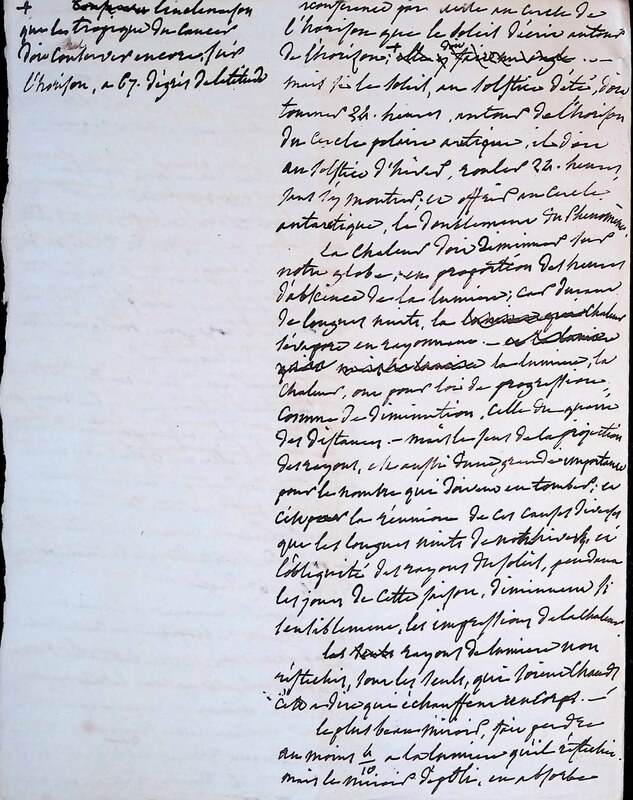 + l'inclinaison
que les tropique du Cancer
doit Conserver encore, sur
l'horison, a 67. degrés de latitude
conference par suite au cercle de
l'horison que le soleil décrit autour
de l'horison; +
mais si le soleil, au solstice d'été, doit
tourner 24. heures, autour de l'horison
du Cercle polaire artique, il doit
au solstice d'hiver, rouler 24. heures,
sans s'y montrer, et offrir au cercle
antarctique, le Phénomène.
la Chaleur doit Diminuer sur
notre globe, en proportion des heures
d'abscence de la lumiere; car durant
de longues nuits, la Chaleur
s'évapore en rayonnant. -
la lumiere, la
Chaleur, ont pour loi de progression,
Comme de diminution, Celle du quarré
des distances. - mais le sens de la projection
des rayons, est aussi d'une grande importance
pour le nombre qui doivent en tomber; et
C'est la réunion de ces causes diverses
que les longues nuits de hivers, et
l'obliquité des rayons du soleil, pendant
les jours de Cette saison, diminuent si
sensiblement, les impressions de la Chaleur.
les rayons de lumiere non
réfléchis, sont les seuls, qui soient Chauds
C'est a dire qui échauffent un Corps. -
le plus beau miroir, fait perdre
au moins 4/10 a la lumiere qu'il réfléchit.
mais le miroir dépoli, en absorbe